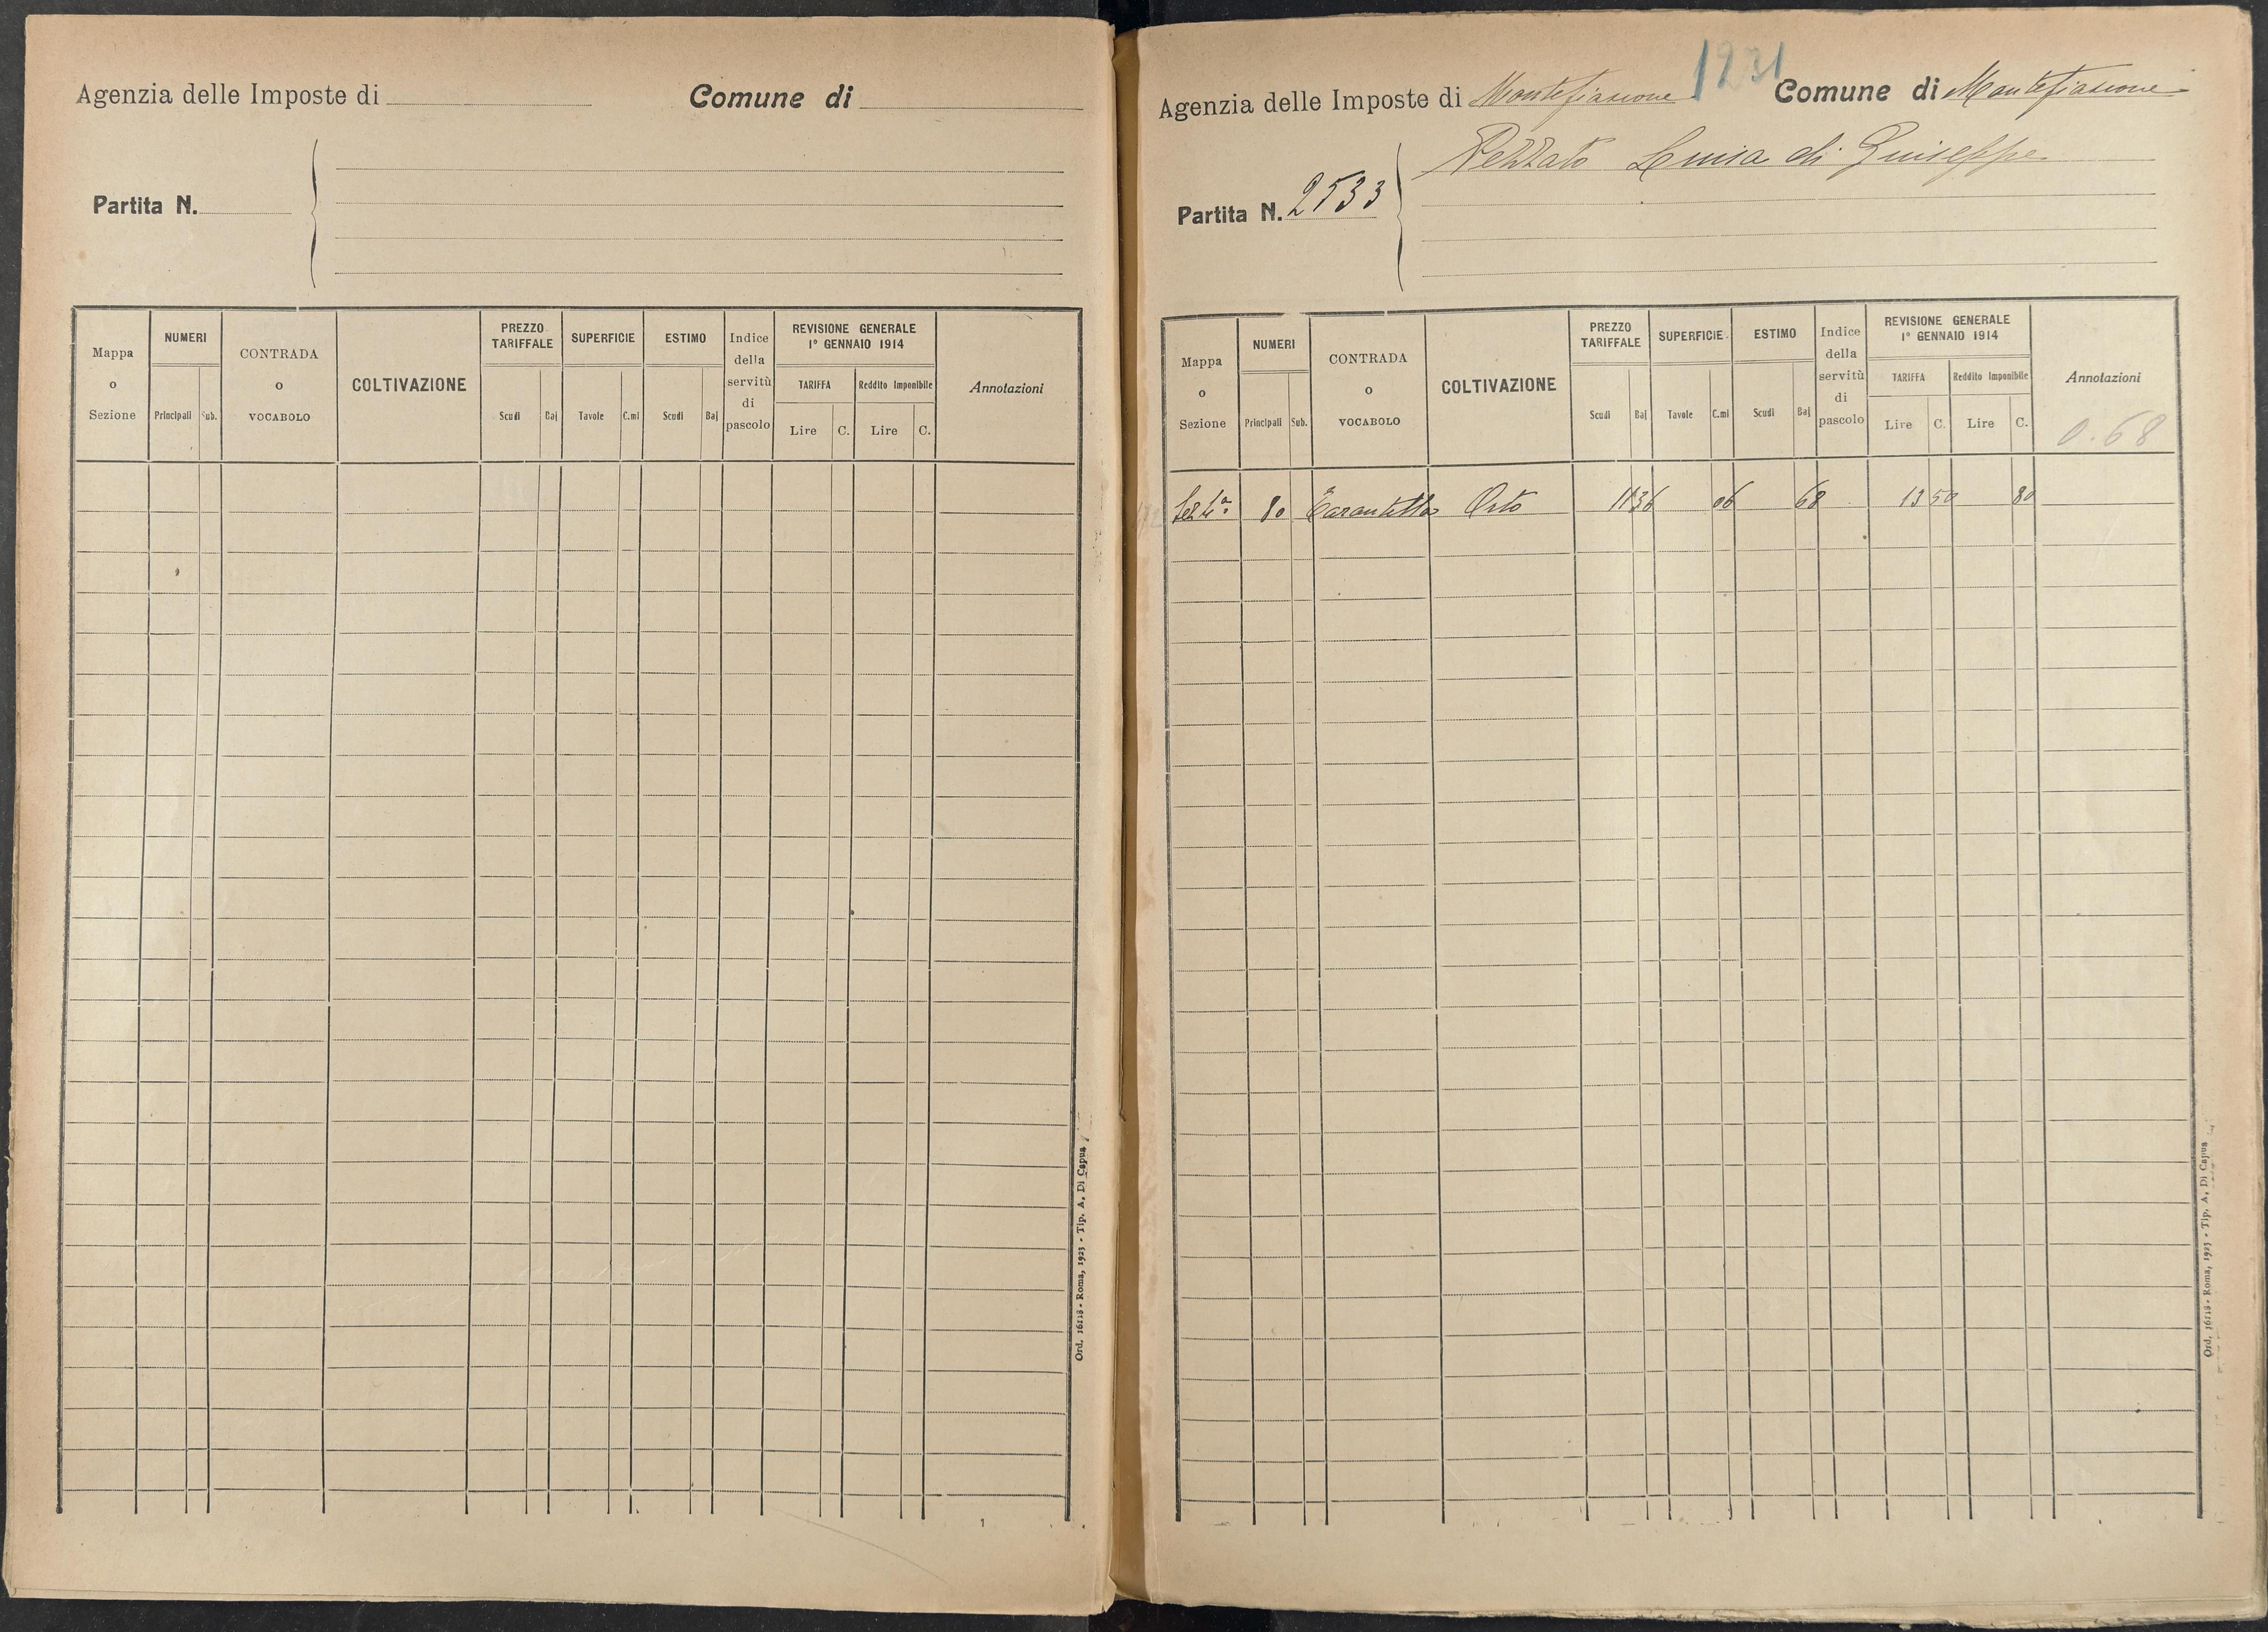 Agenzia delle Imposte di Comune di
Partita N.
Mappa o Sezione NUMERI Principali Sub. CONTRADA o VOCABOLO COLTIVAZIONE PREZZO TARIFFALE Scudi Baj SUPERFICIE Tavole C.mi ESTIMO Scudi Baj Indice della servitù di pascolo REVISIONE GENERALE 1° GENNAIO 1914 TARIFFA Lire C. Reddito Imponibile Lire C. Annotazioni
Ord. 16118 - Roma, 1923 - Tip. A. Di Capua
1231
Agenzia delle Imposte di Montefiascone Comune di Montefiascone
Pezzato Luisa di Giuseppe
Partita N. 2533
Mappa o Sezione NUMERI Principali Sub. CONTRADA o VOCABOLO COLTIVAZIONE PREZZO TARIFFALE Scudi Baj SUPERFICIE. Tavole C.mi ESTIMO Scudi Baj Indice della servitù di pascolo REVISIONE GENERALE 1° GENNAIO 1914 TARIFFA Lire C. Reddito Imponibile Lire C. Annotazioni
0.68
80 Orto 11 36 06 68 13 50 80
Ord. 16118 - Roma, 1923 - Tip. A. Di Capua